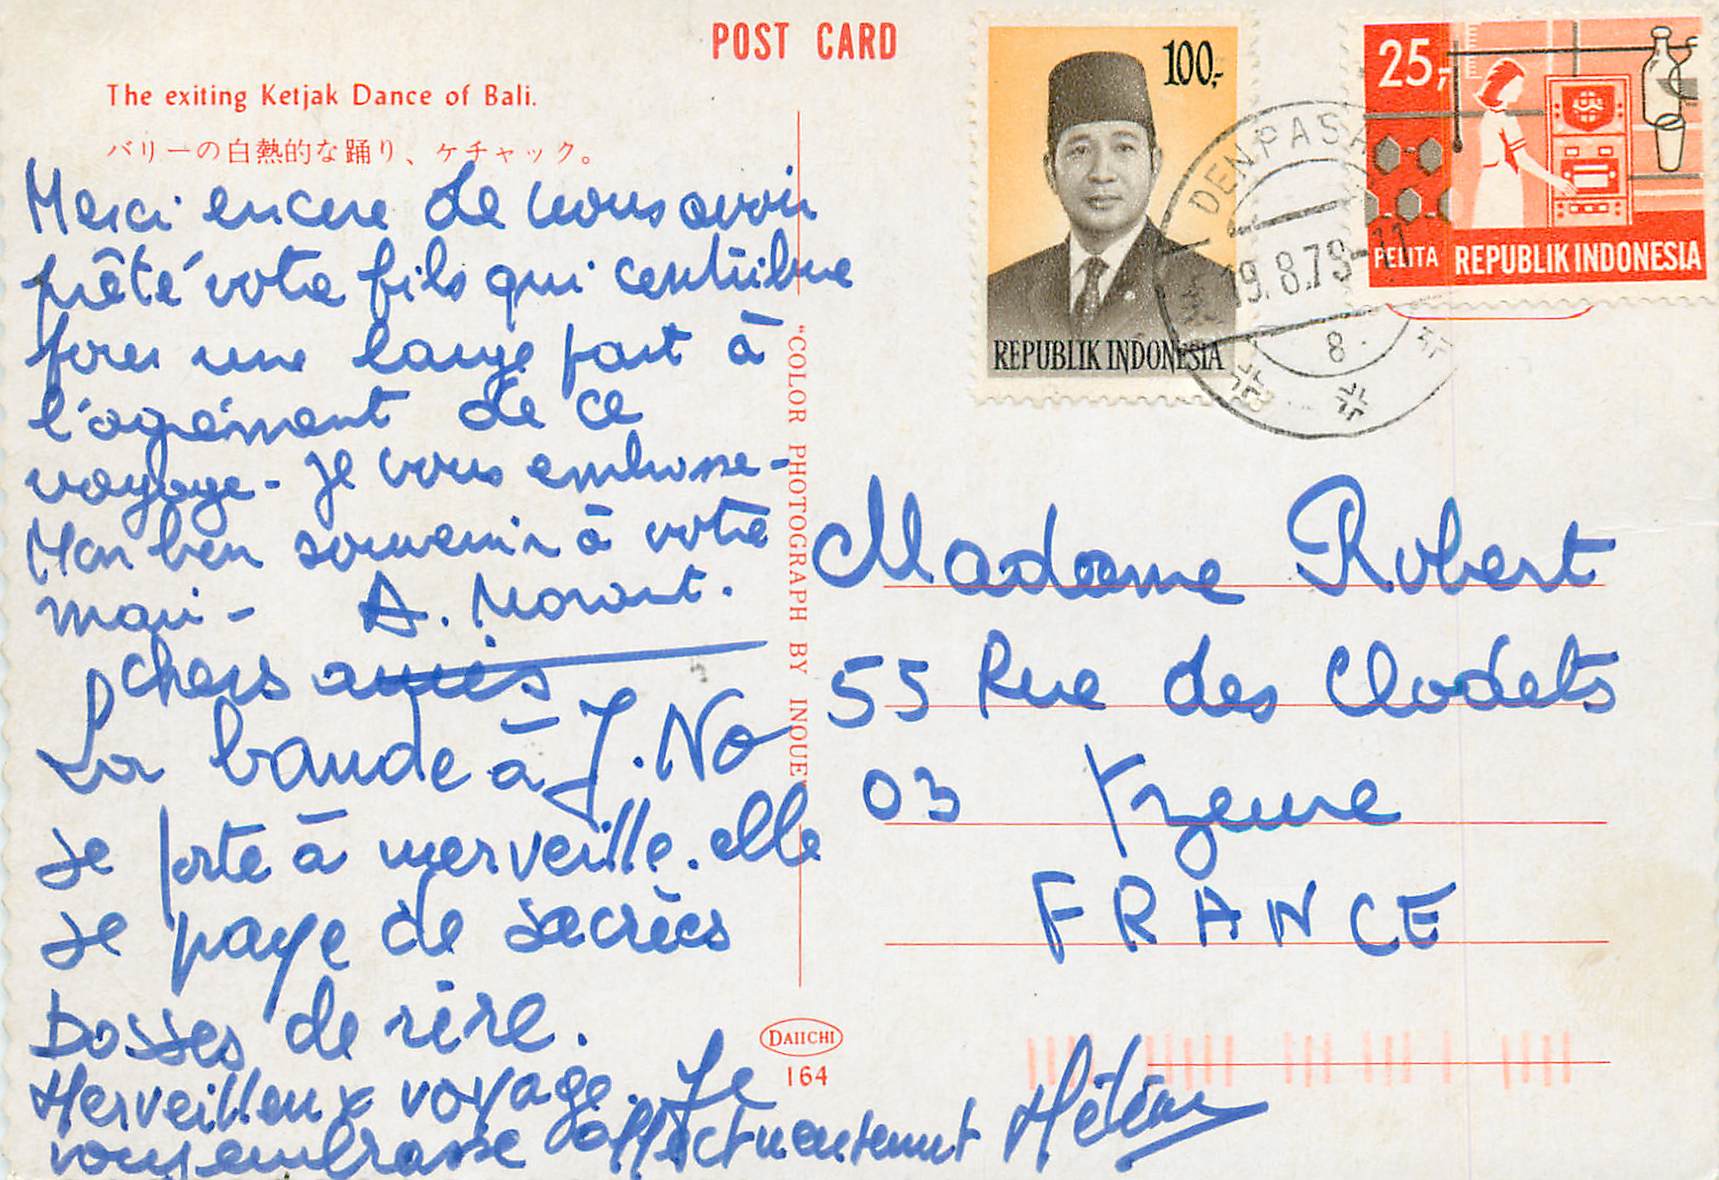 POST CARD
The exiting Ketjak Dance of Bali.
バリーの白熱的な踊り、ケチャック。
Merci encore de nous avoir
prêté votre fils qui contribue
pour une large part à
l'agrément de ce
voyage - Je vous embrasse -
Mon bon souvenir à votre
mari - A. Morant.
chers amis
La bande à J. No
se porte à merveille. elle
se paye de sacrées
bosses de rire.
Merveilleux voyage. Je
vous embrasse affectueusement Hélène
"COLOR PHOTOGRAPH BY INOUE"
DAIICHI
164
100,-
REPUBLIK INDONESIA
25,-
PELITA REPUBLIK INDONESIA
DENPASAR
19.8.79-11
8.
Madame Robert
55 Rue des Clodets
03 Yzeure
FRANCE